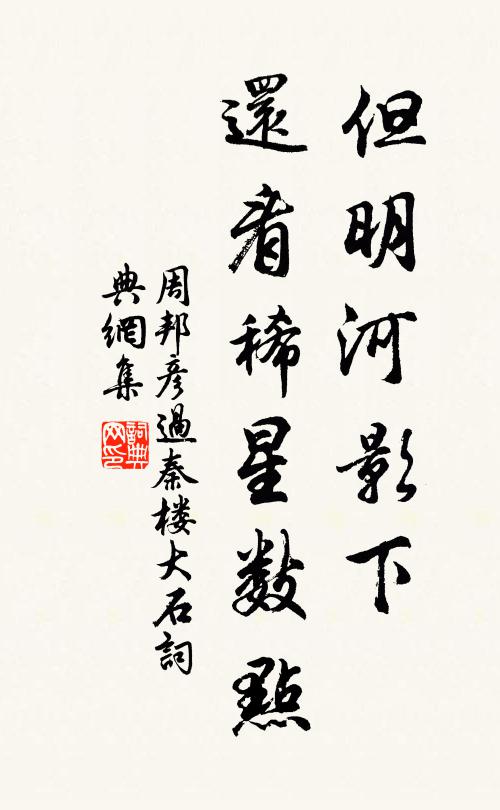 但明河影下
還看稀星數點
周邦彥過秦楼大石詞
典網集
詞典
网印